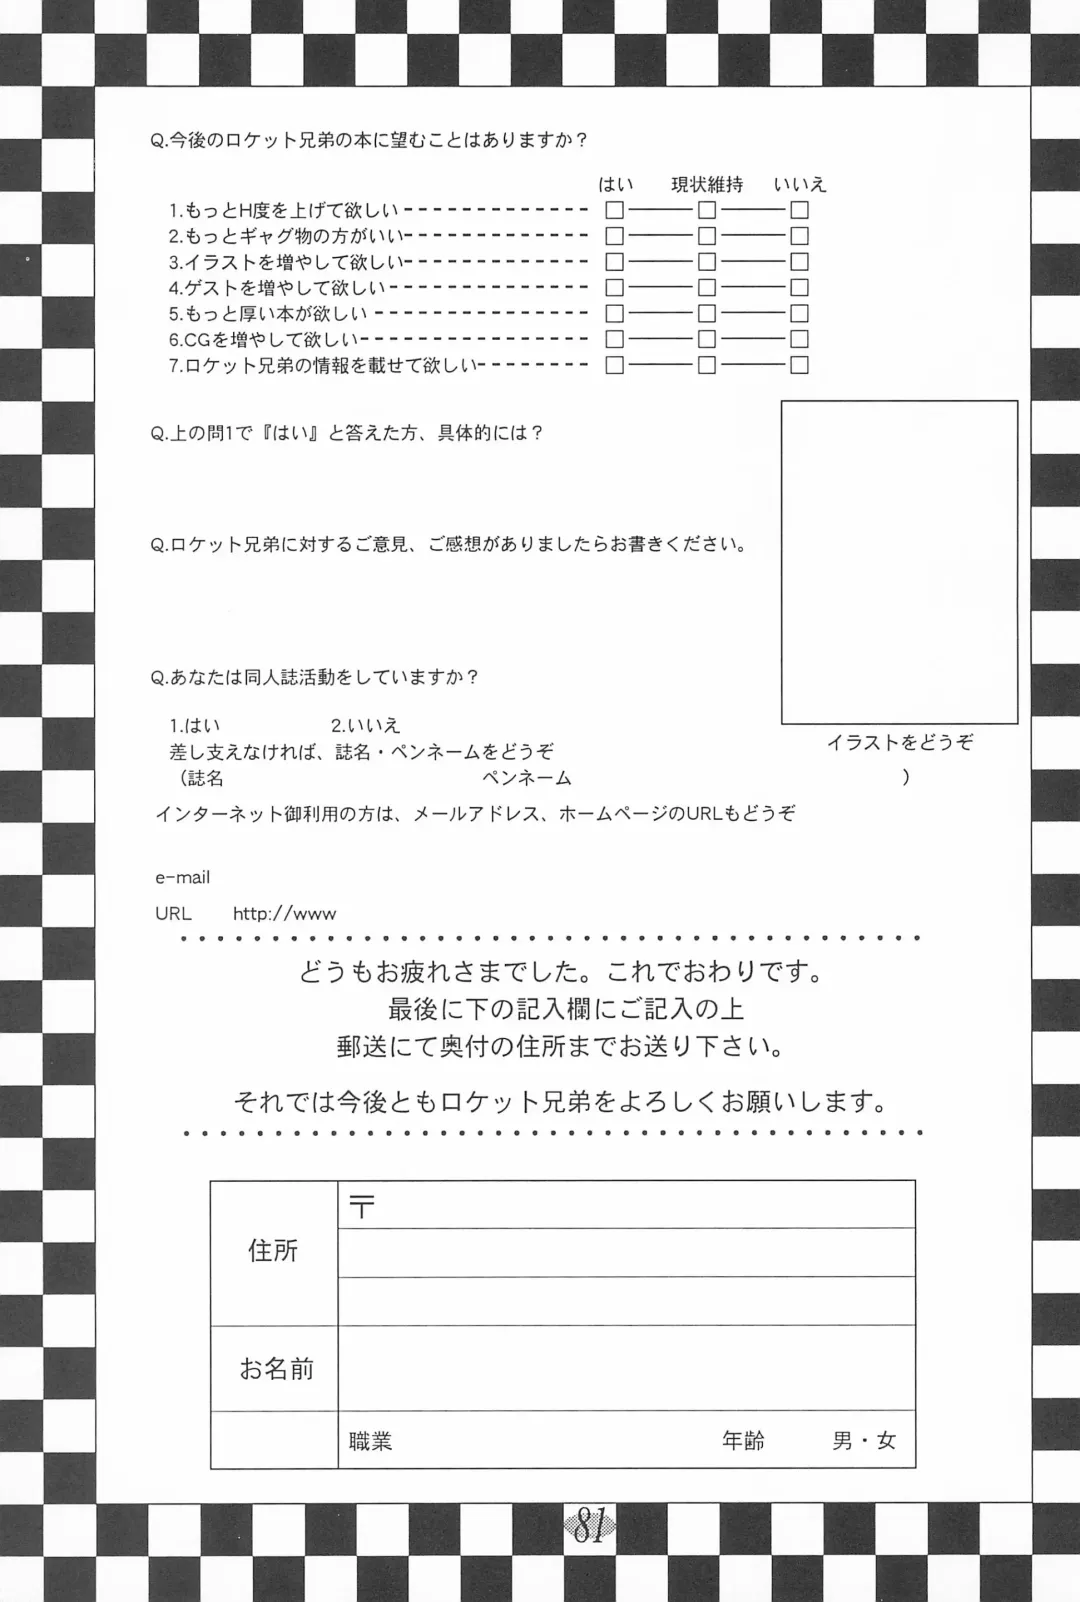 Q.今後のロケット兄弟の本に望むことはありますか？
はい 現状維持 いいえ
1.もっとH度を上げて欲しい
2.もっとギャグ物の方がいい
3.イラストを増やして欲しい
4.ゲストを増やして欲しい
5.もっと厚い本が欲しい
6.CGを増やして欲しい
7.ロケット兄弟の情報を載せて欲しい
Q.上の問1で『はい』と答えた方、具体的には？
Q.ロケット兄弟に対するご意見、ご感想がありましたらお書きください。
Q.あなたは同人誌活動をしていますか？
1.はい 2.いいえ
差し支えなければ、誌名・ペンネームをどうぞ
（誌名 ペンネーム ）
イラストをどうぞ
インターネット御利用の方は、メールアドレス、ホームページのURLもどうぞ
e-mail
URL http://www
どうもお疲れさまでした。これでおわりです。
最後に下の記入欄にご記入の上
郵送にて奥付の住所までお送り下さい。
それでは今後ともロケット兄弟をよろしくお願いします。
〒
住所
お名前
職業 年齢 男・女
81